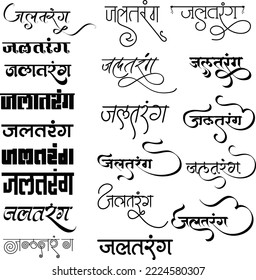 जलतरंग
जलतरंग
जलतरंग
जलतरंग
जलतरंग
जलतरंग
जलतरंग
जलतरंग
जलतरंग
जलतरंग
जलतरंग
जलतरंग
जलतरंग
जलतरंग
जलतरंग
जलतरंग
जलतरंग
जलतरंग
जलतरंग
जलतरंग
shutterstock.com · 2224580307